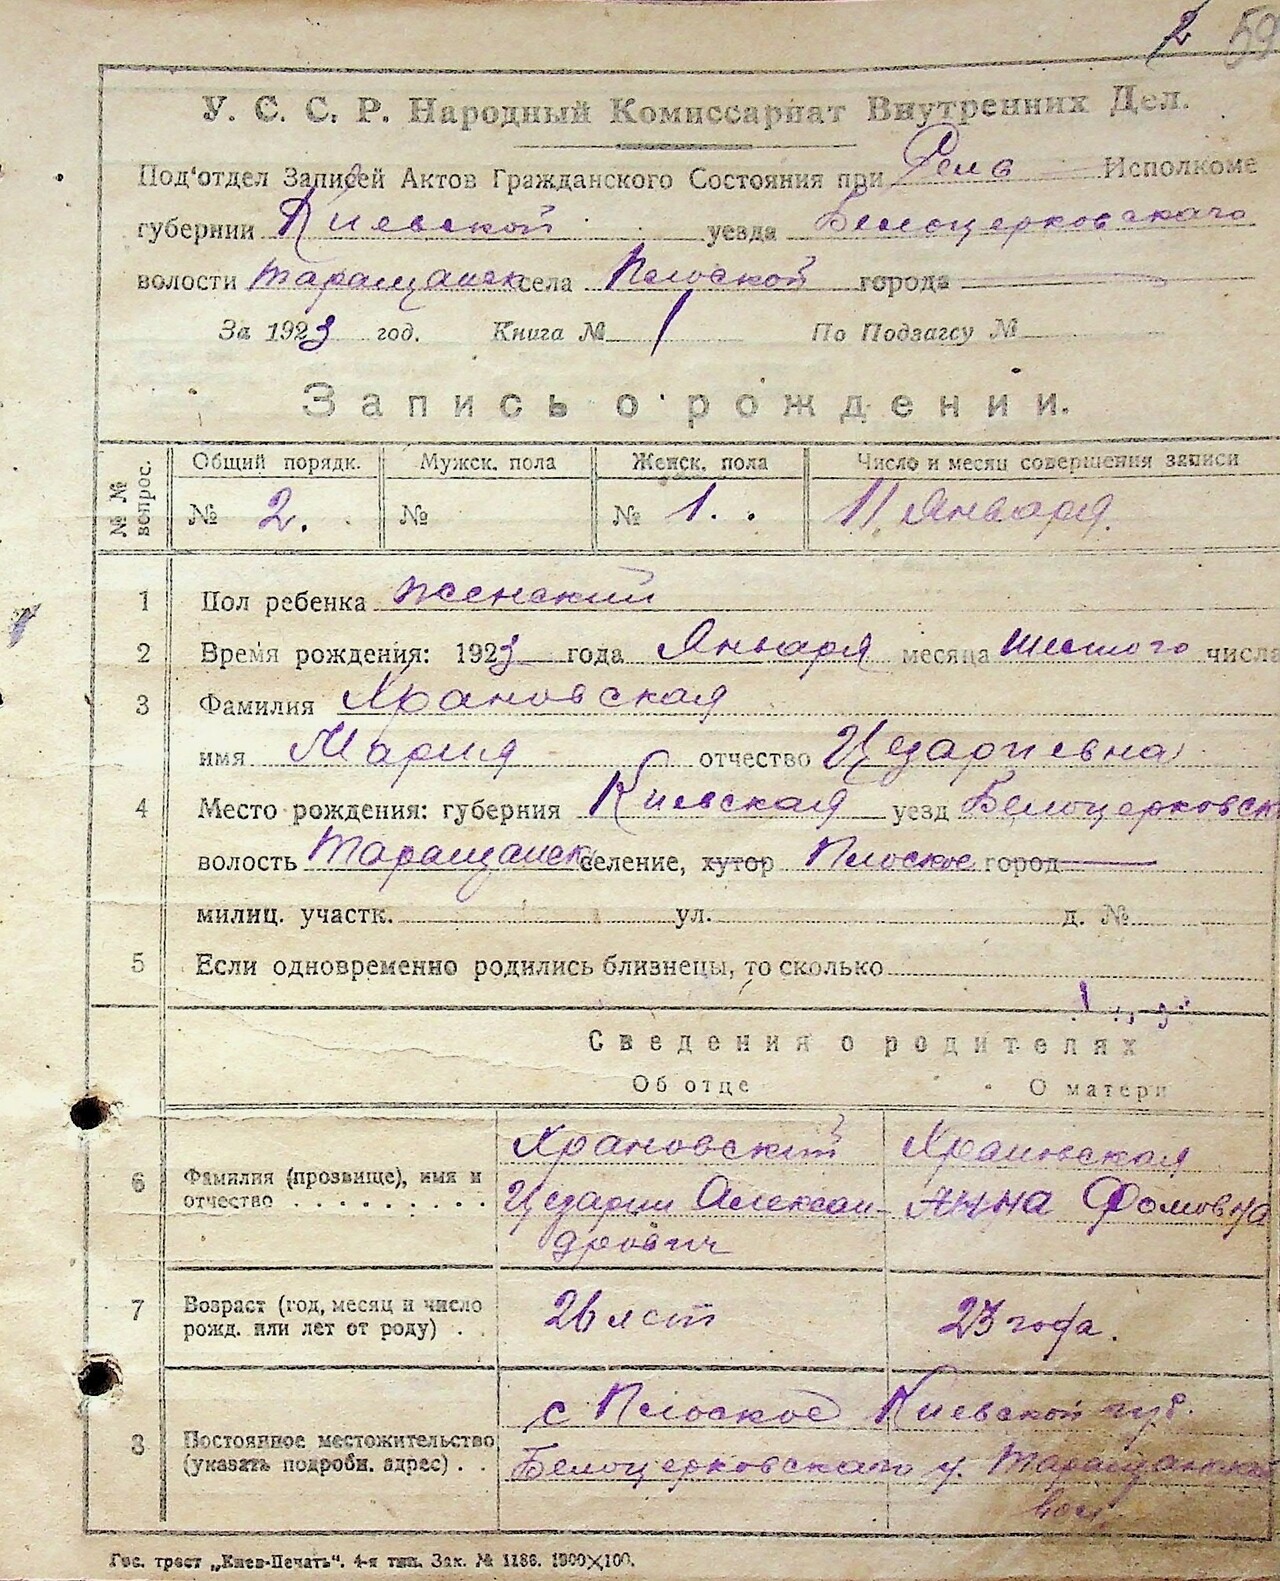 2 59
У. С. С. Р. Народный Комиссариат Внутренних Дел.
Под'отдел Записей Актов Гражданского Состояния при Исполкоме
губернии Киевской уезда Белоцерковскаго
волости Таращанск села Плоской города
За 1923 год. Книга № 1 По Подзагсу №
Запись о рождении.
№ № вопрос. Общий порядк. Мужск. пола Женск. пола Число и месяц совершения записи
№ 2. № № 1. 11 Января.
1 Пол ребенка женский
2 Время рождения: 1923 года Января месяца шестого числа
3 Фамилия Храновская
имя Мария отчество Цезариевна
4 Место рождения: губерния Киевская уезд Белоцерковск
волость Таращанск селение, хутор Плоское город
милиц. участк. ул. д. №
5 Если одновременно родились близнецы, то сколько
Сведения о родителях
Об отце О матери
6 Фамилия (прозвище), имя и отчество Храновский Цезарий Александрович Храновская Анна Фомовна
7 Возраст (год, месяц и число рожд. или лет от роду) 26 лет 23 года.
8 Постоянное местожительство (указать подробн. адрес) с Плоское Киевской губ.
Белоцерковскаго у. Таращанской
вол.
Гос. трест „Киев-Печать". 4-я тип. Зак. № 1186. 1900×100.